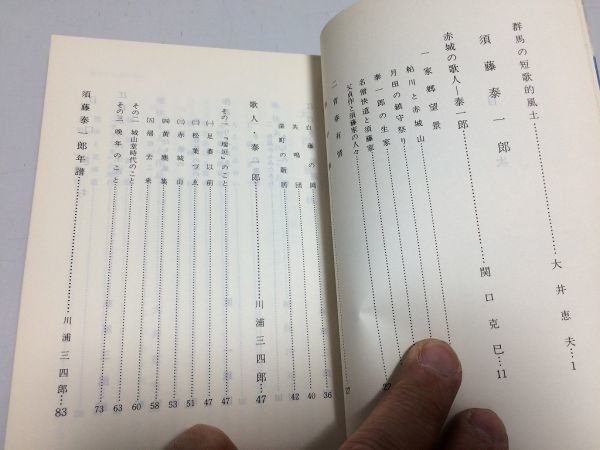 群馬の短歌的風土……大井恵夫…1
須藤泰一郎……関口克巳…11
赤城の歌人―泰一郎
一 家郷望景
粕川と赤城山
月田の鎮守祭り
泰一郎の生家
名僧快遵と須藤家
父貞作と須藤家の人々
二 青春有情
36
白藤の岡……40
共鳴団……42
歌人・泰一郎……川浦三四郎…47
その一『瑞垣』のこと……47
㈠ 足基以前……47
㈡ 松葉づゑ……51
㈢ 赤城山……53
㈣ 黄塵集……58
㈤ 帰去来……60
その二 城山堂時代のこと……63
その三 晩年のこと……73
須藤泰一郎年譜……川浦三四郎…83